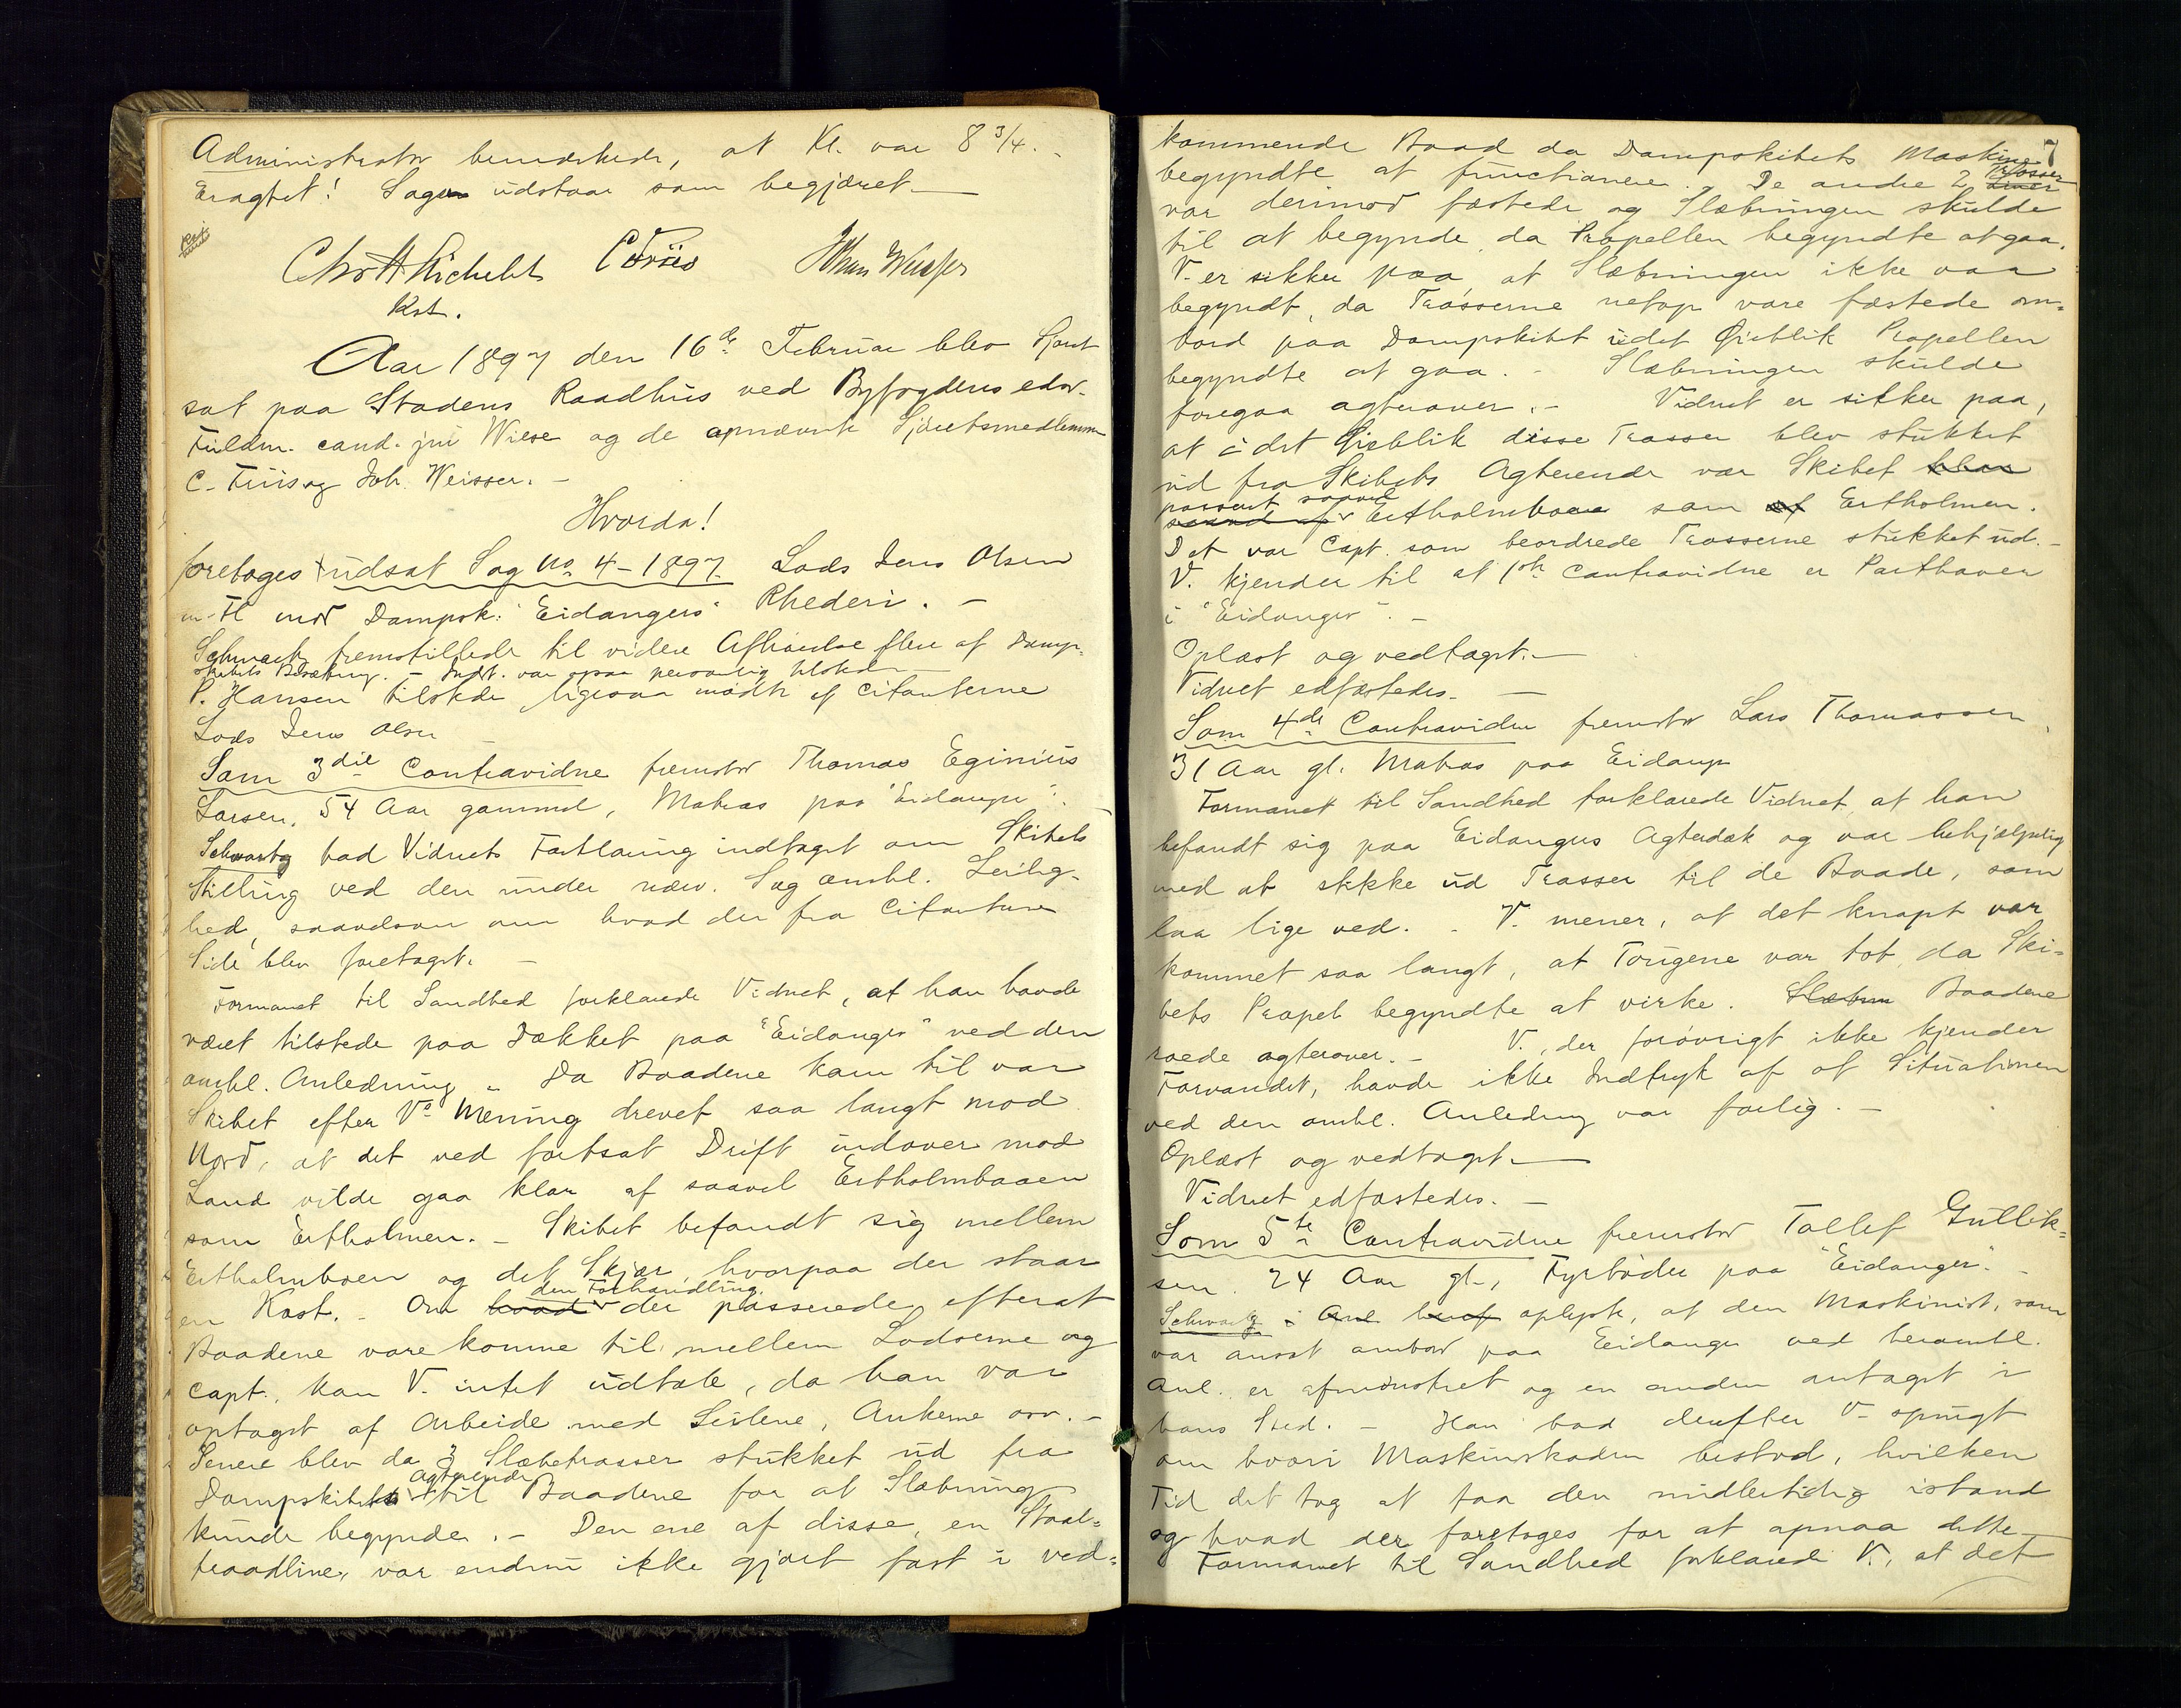 Administrator bemærkede, at Kl. var 8 3/4.
Eragtet! Sagen udstaar som begjæret.
Kst.
Aar 1897 den 16de Februar blev Sjøret
sat paa Stadens Raadhus ved Byfogdens edsv.
Fuldm. cand. jur Wiese og de opnævnte Sjøretsmedlemmer
C. Friis og Joh. Weisser. -
Hvorda!
foretoges udsat Sag No 4 - 1897 Lods Jens Olsen
m. Fl mod Dampsk: "Eidangers" Rhederi. -
Schwartz fremstillede til videre Afhørelse flere af Damp-
skibets Besætning. - Indst. var ogsaa personlig tilstede
P. Hansen tilstede ligesaa mødte af Citanterne
Lods Jens Olsen
Som 3die Contravidne fremstod Thomas Eginius
Larsen, 54 Aar gammel, Matros paa "Eidanger".
Schwartz bad Vidnets Forklaring indtaget om Skibets
Stilling ved den under nærv. Sag omhl. Leilig-
hed, saavelsom om hvad der fra Citanternes
Side blev foretaget. -
Formanet til Sandhed forklarede Vidnet, at han havde
været tilstede paa Dækket paa "Eidanger" ved den
omhl. Anledning. - Da Baadene kom til var
Skibet efter Vs Mening drevet saa langt mod
Nord, at det ved fortsat Drift indover mod
Land vilde gaa klar af saavel Ertholmbaaen
som Ertholmen. - Skibet befandt sig mellem
Ertholmboen og det Skjær, hvorpaa der staar
en Kost. - Om hvad den Forhandling der passerede efterat
Baadene vare komne til, mellem Lodserne og
Capt., kan V. intet udtale, da han var
optaget af Arbeide med Seilene, Ankerne osv. -
Senere blev da 3 Slæbetrosser stukket ud fra
Dampskibets Agterende til Baadene for at Slæbning
kunde begynde. - Den ene af disse, en Staal-
traadline, var endnu ikke gjort fast i ved-
7
kommende Baad da Dampskibets Maskine
begyndte at functionere. - De andre 2 Trosser
var derimod fæstede og Slæbningen skulde
til at begynde, da Propellen begyndte at gaa.
V. er sikker paa, at Slæbningen ikke var
begyndt, da Trosserne netop vare fæstede om-
bord paa Dampskibet i det Øieblik Propellen
begyndte at gaa. - Slæbningen skulde
foregaa agterover. - Vidnet er sikker paa,
at i det Øieblik disse Trosser blev stukket
ud fra Skibets Agterende var Skibet klar
passert saavel saavel af Ertholmboen som af Ertholmen.
Det var Capt. som beordrede Trosserne stukket ud. -
V. kjender til at 1ste Contravidne er Parthaver
i "Eidanger". -
Oplæst og vedtaget. -
Vidnet edfæstedes. -
Som 4de Contravidne fremstod Lars Thomassen
31 Aar gl. Matros paa Eidanger
Formanet til Sandhed forklarede Vidnet, at han
befandt sig paa Eidangers Agterdæk og var behjælpelig
med at stikke ud Trosser til de Baade, som
laa lige ved. - V. mener, at det knapt var
kommet saa langt, at Tougene var tot, da Ski-
bets Propel begyndte at virke. Slæbnin Baadene
roede agterover. - V., der forøvrigt ikke kjender
Farvandet, havde ikke Indtryk af at Situationen
ved den omhl. Anledning var farlig. -
Oplæst og vedtaget. -
Vidnet edfæstedes. -
Som 5te Contravidne fremstod Tollef Gullik-
sen. 24 Aar gl., Fyrbøder paa "Eidanger". -
Schwartz i Anl heraf oplyste, at den Maskinist, som
var ansat ombord paa Eidanger ved heromhl.
Anl. er afmønstret og en anden antaget i
hans Sted. - Han bad derefter V. spurgt
om hvori Maskinskaden bestod, hvilken
Tid det tog at faa den midlertidig istand
og hvad der foretoges for at opnaa dette. -
Formanet til Sandhed forklarede V., at det